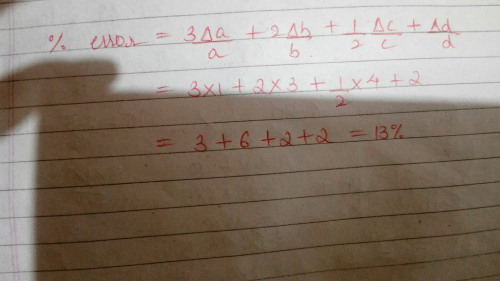 % error = 3Δa/a + 2Δb/b + 1/2 Δc/c + Δd/d
= 3×1 + 2×3 + 1/2 ×4 + 2
= 3 + 6 + 2 + 2 = 13%